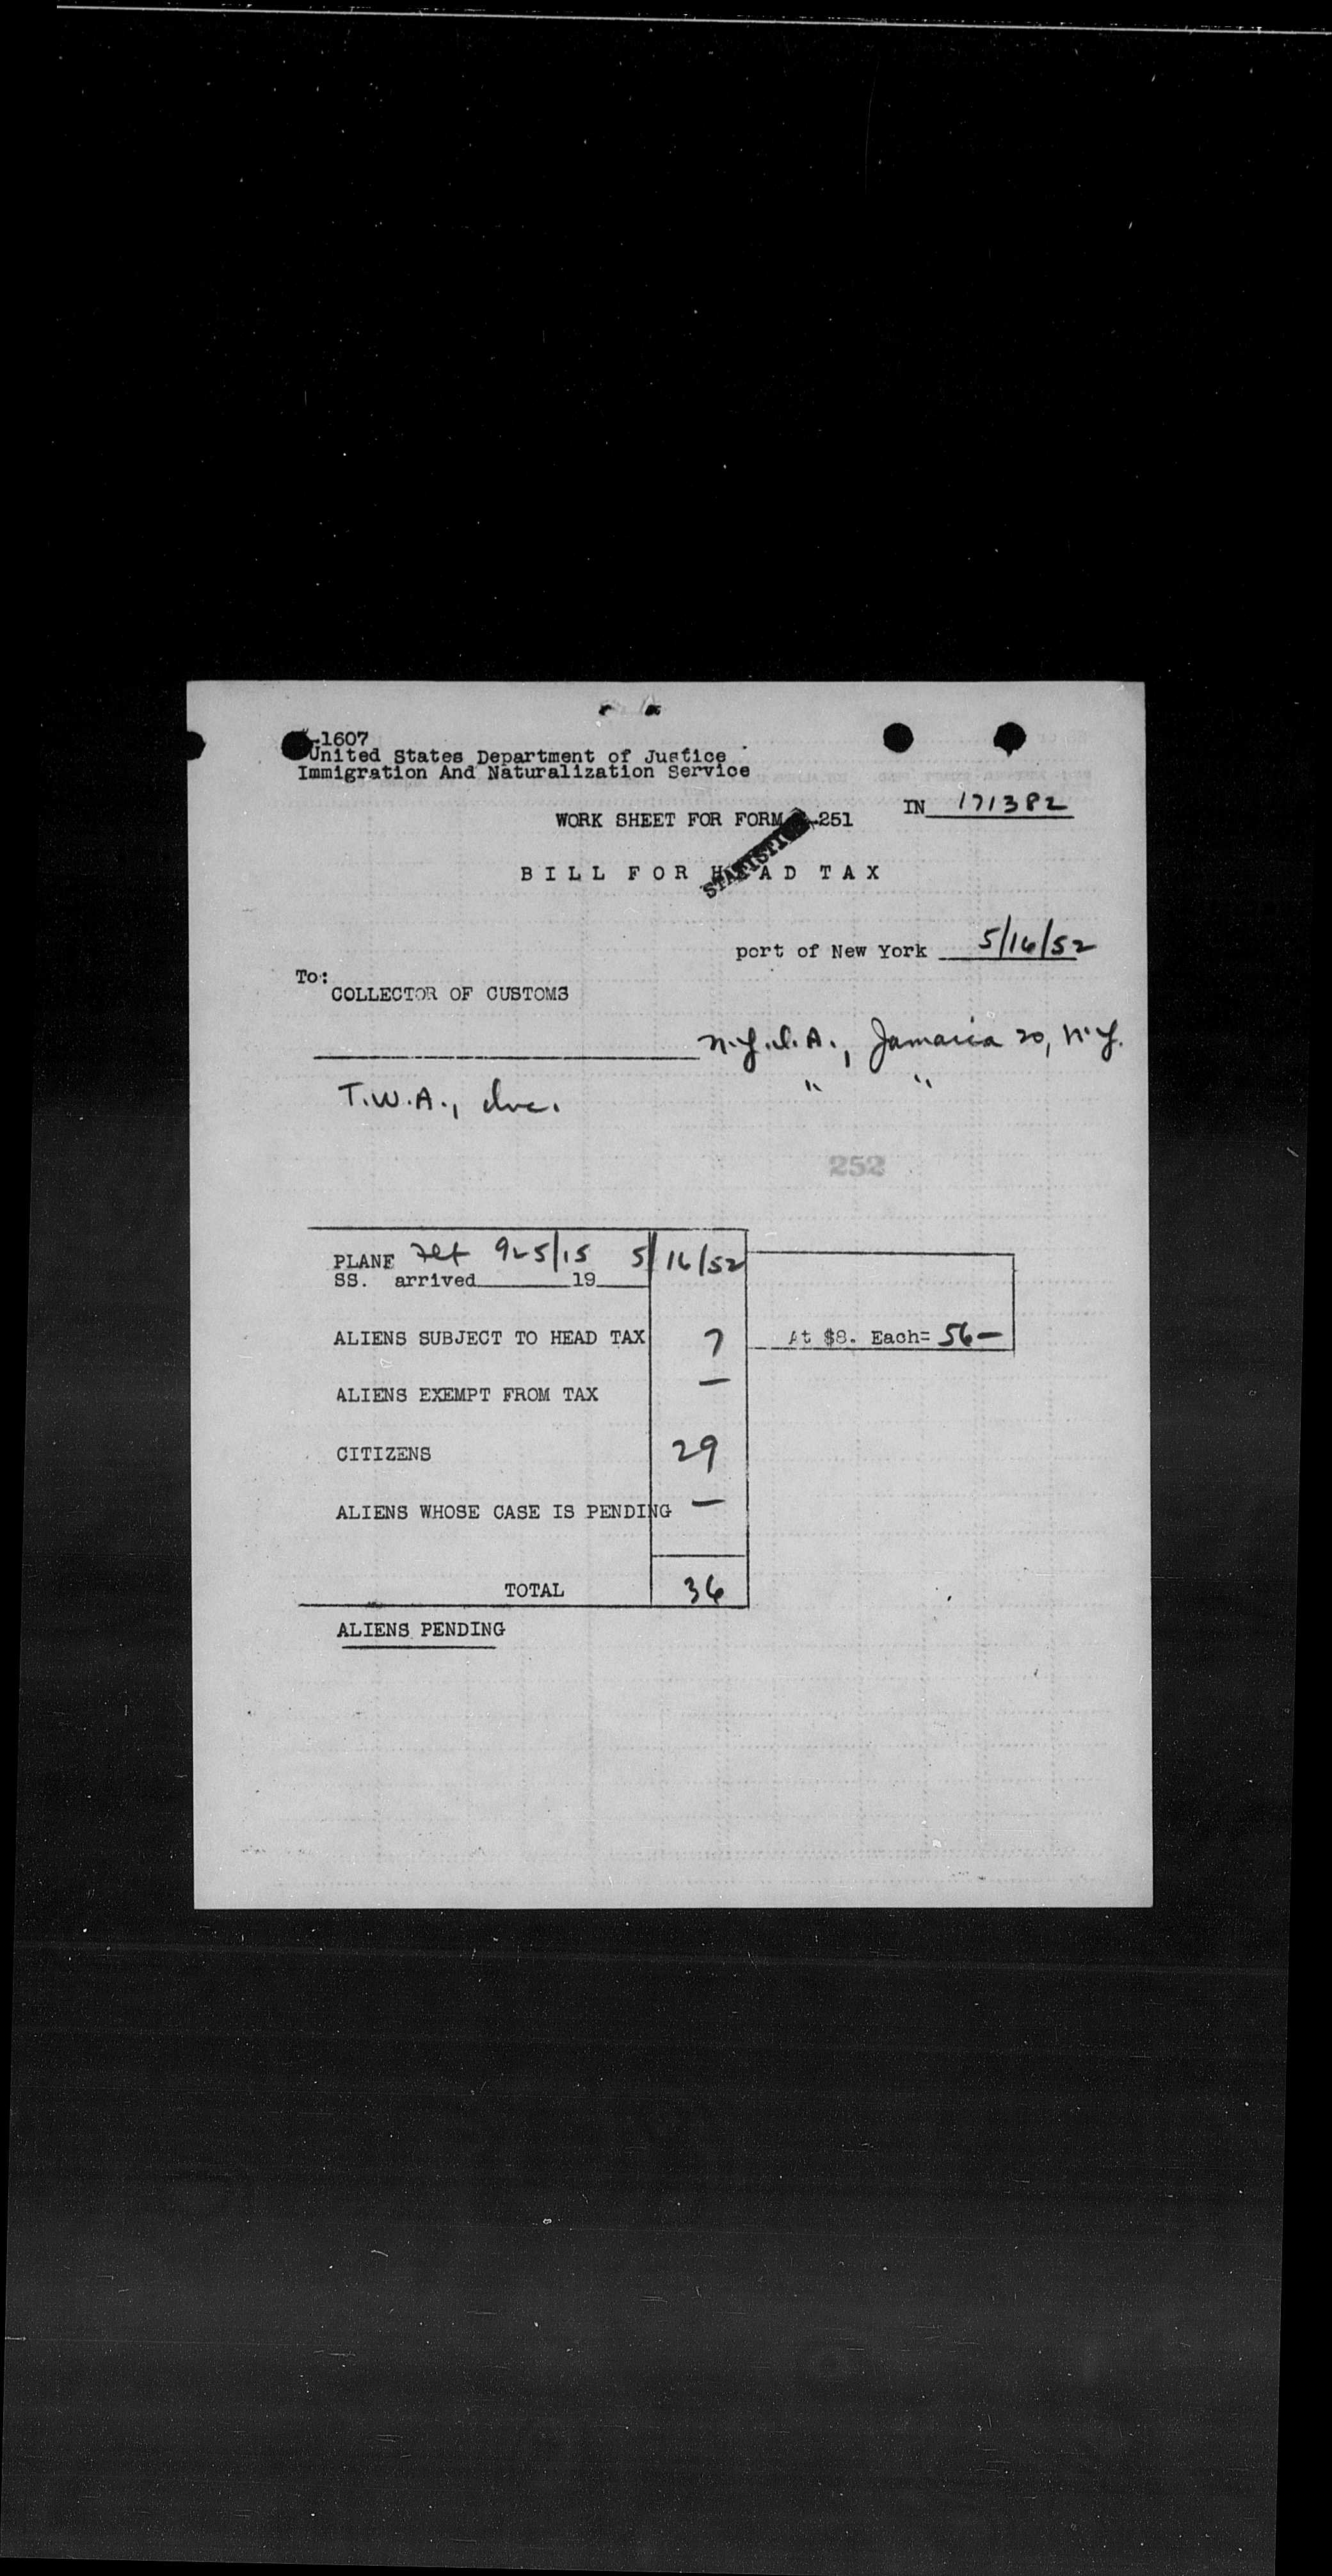 -1607
United States Department of Justice
Immigration And Naturalization Service
IN 171382
WORK SHEET FOR FORM -251
STATISTI
BILL FOR HEAD TAX
port of New York 5/16/52
To:
COLLECTOR OF CUSTOMS
N.Y.I.A., Jamaica 20, N.Y.
T.W.A., Inc. " "
252
PLANE 925/15 5/16/52
SS. arrived 19
ALIENS SUBJECT TO HEAD TAX 7 At $8. Each= 56—
ALIENS EXEMPT FROM TAX —
CITIZENS 29
ALIENS WHOSE CASE IS PENDING —
TOTAL 36
ALIENS PENDING